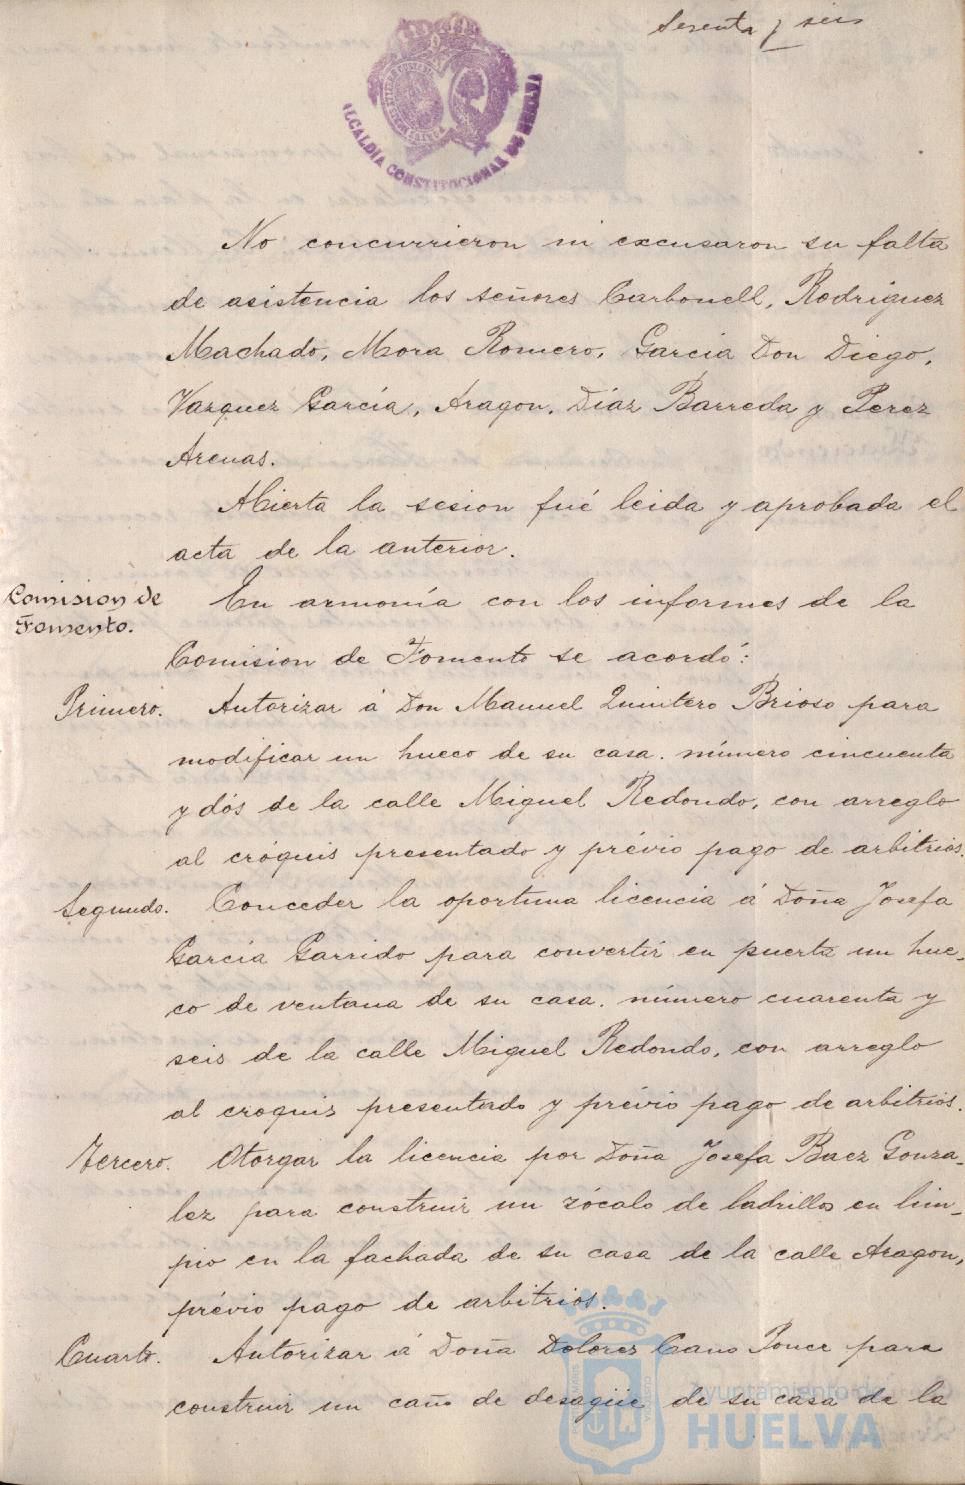 Sesenta y seis
ALCALDIA CONSTITUCIONAL DE HUELVA
No concurrieron ni excusaron su falta
de asistencia los señores Carbonell, Rodriguez
Machado, Mora Romero, Garcia Don Diego,
Vazquez García, Aragon, Díaz Barreda y Perez
Arenas.
Abierta la sesion fué leida y aprobada el
acta de la anterior.
Comision de
Fomento.
En armonía con los informes de la
Comision de Fomento se acordó:
Primero. Autorizar á Don Manuel Quintero Brioso para
modificar un hueco de su casa. número cincuenta
y dós de la calle Miguel Redondo, con arreglo
al cróquis presentado y prévio pago de arbitrios.
Segundo. Conceder la oportuna licencia á Doña Josefa
García Garrido para convertir en puerta un hue-
co de ventana de su casa. número cuarenta y
seis de la calle Miguel Redondo, con arreglo
al croquis presentado y prévio pago de arbitrios.
Tercero. Otorgar la licencia por Doña Josefa Baez Gonza-
lez para construir un zócalo de ladrillos en lim-
pio en la fachada de su casa de la calle Aragon,
prévio pago de arbitrios.
Cuarto. Autorizar á Doña Dolores Cano Ponce para
construir un caño de desagüe de su casa de la
Ayuntamiento de
HUELVA